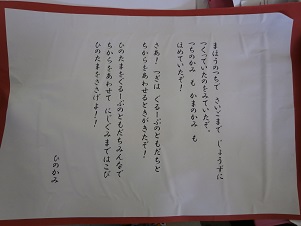 まほうのつちで さいごまで じょうずに
つくっていたのをみていたぞ。
つちのかみ も かまのかみ も
ほめていたぞ！
さあ！ つぎは ぐるーぷのともだちと
ちからをあわせるときがきたぞ！
ひのたまをぐるーぷのともだちみんなで
ちからをあわせて にじぐみまではこび
ひのたまをささげよ！！
ひのかみ